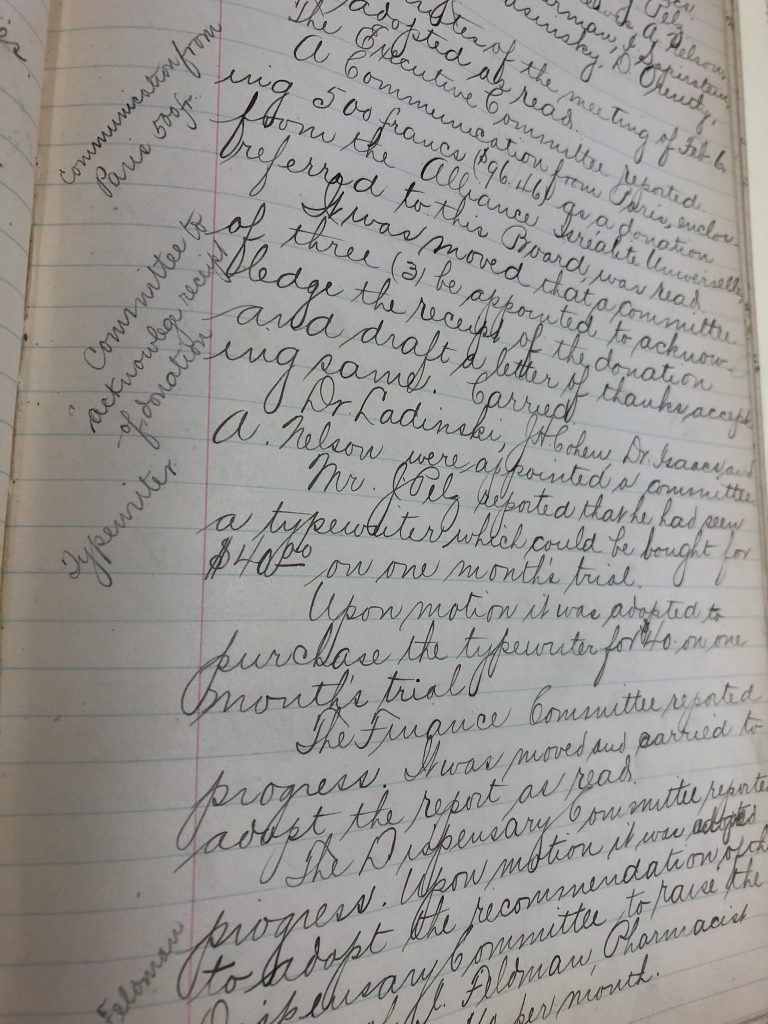 A. Nelson,
Pelz
Sapirstein,
D. Drendz,
minutes of the meeting of Feb 6,
adopted as read.
The Executive Committee reported.
Communication from
Paris 500 fr.
A Communication from Paris, enclos-
ing 500 francs ($96.46) as a donation
from the Alliance Israelite Universelle,
referred to this Board, was read.
Committee to
acknowledge receipt
of donation
It was moved that a committee
of three (3) be appointed to acknow-
ledge the receipt of the donation
and draft a letter of thanks, accept-
ing same. Carried.
Dr. Ladinski, J. H. Cohen, Dr. Isaacs and
A. Nelson were appointed a committee.
Typewriter
Mr. J Pelz reported that he had seen
a typewriter which could be bought for
$40.00 on one month's trial.
Upon motion it was adopted to
purchase the typewriter for $40. on one
month's trial.
The Finance Committee reported
progress. It was moved and carried to
adopt the report as read.
The Dispensary Committee reported
progress. Upon motion it was adopted
to adopt the recommendation of the
Feldman
Dispensary Committee to raise the
Feldman, Pharmacist
per month.